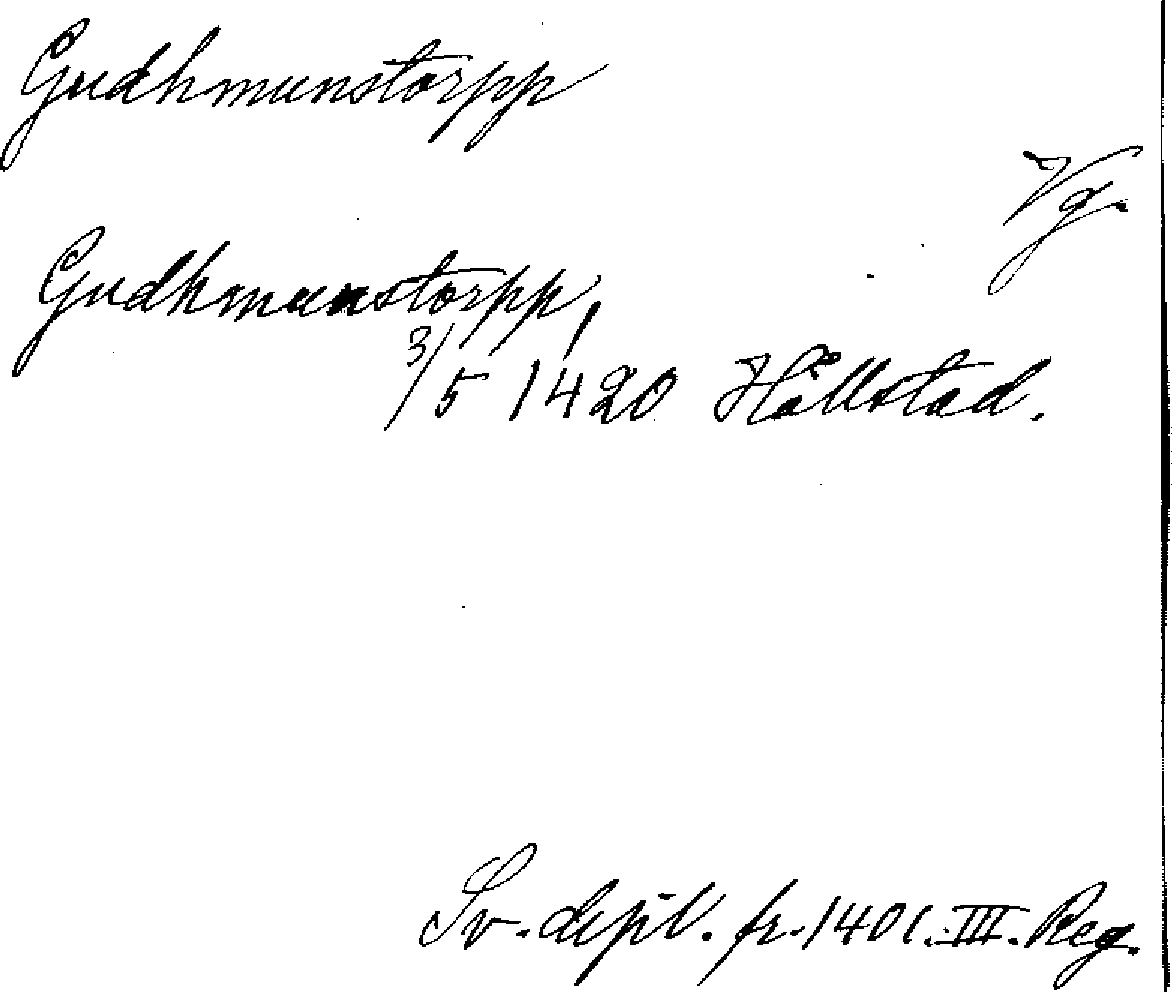 Gudhmunstorpp
Vg.
Gudhmunstorpp,
3/5 1420 Hållstad.
Sv. dipl. fr. 1401. III. Reg.